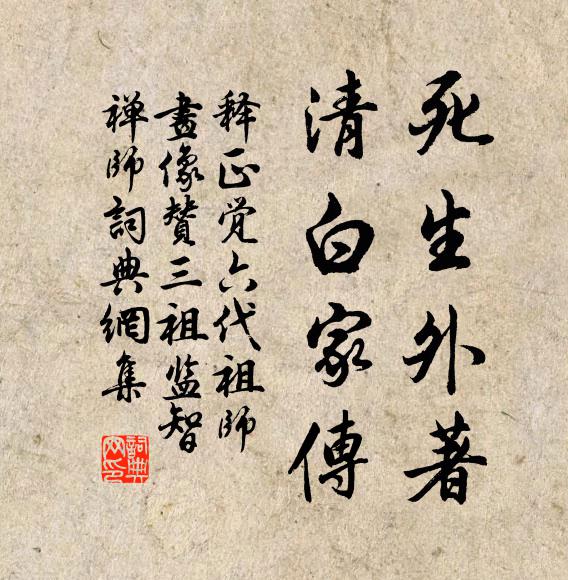 死生外著
清白家傳
释正觉六代祖師
畫像贊三祖监智
禅師詞典網集
詞典
网印